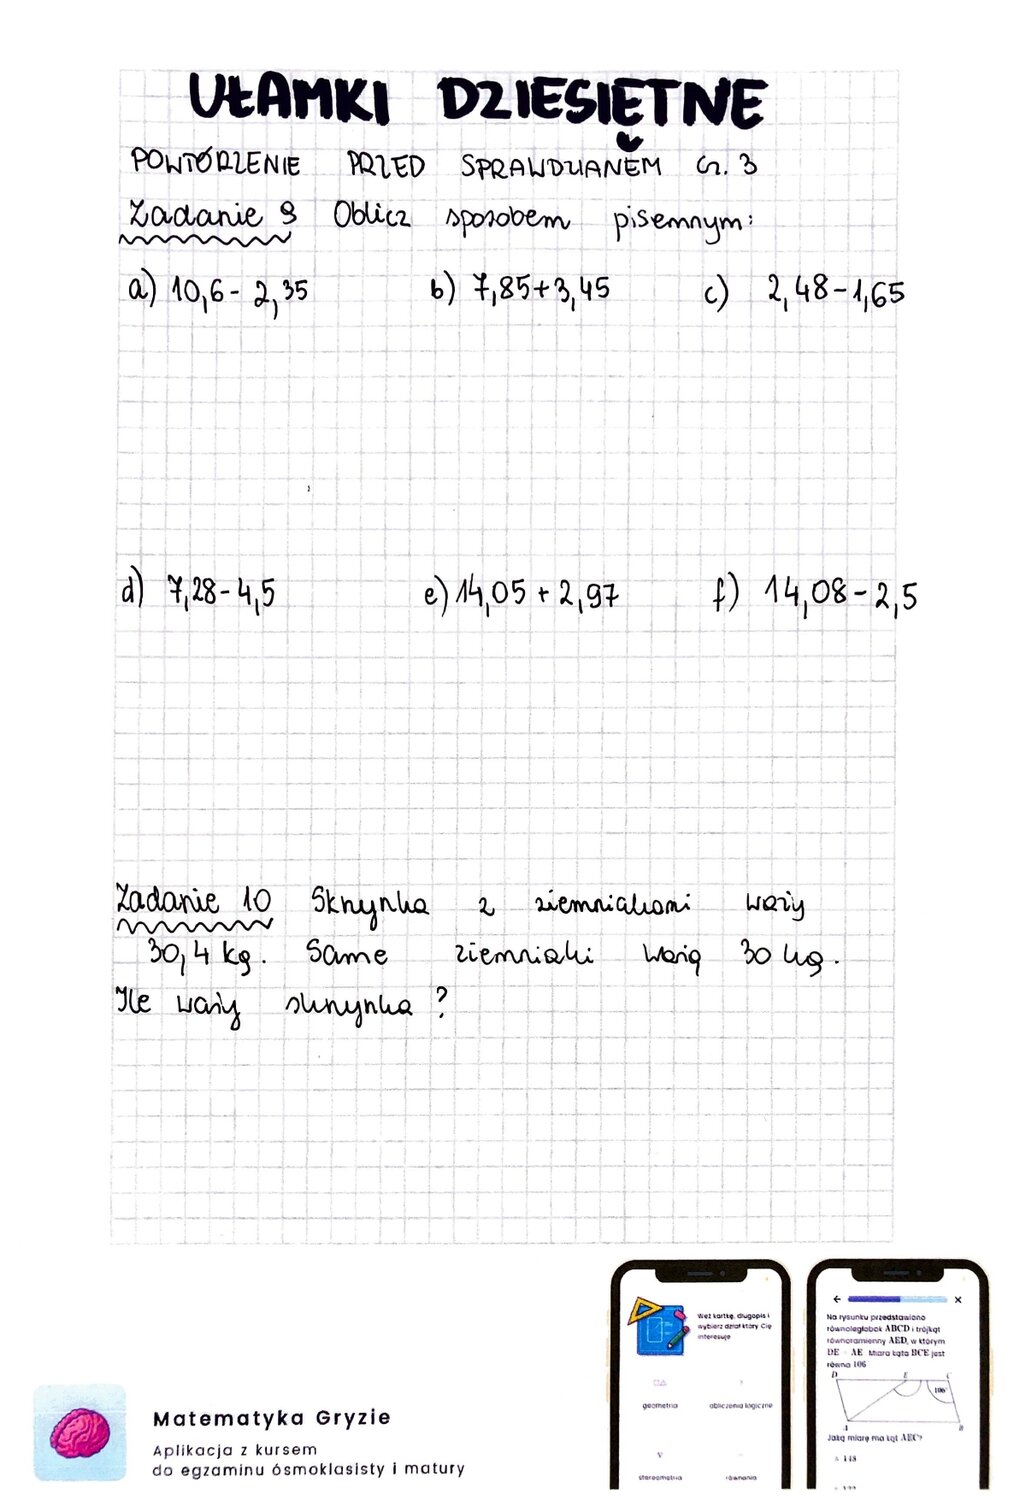 UŁAMKI DZIESIĘTNE
POWTÓRZENIE PRZED SPRAWDZIANEM cz. 3
Zadanie 9 Oblicz sposobem pisemnym:
a) 10,6 - 2,35 b) 7,85+3,45 c) 2,48-1,65
d) 7,28-4,5 e) 14,05 + 2,97 f) 14,08-2,5
Zadanie 10 Skrzynka z ziemniakami waży
30,4 kg. Same ziemniaki ważą 30 kg.
Ile waży skrzynka?
Weź kartkę, długopis i
wybierz dział który Cię
interesuje
geometria obliczenia logiczne
stereometria równania
Na rysunku przedstawiono
równoległobok ABCD i trójkąt
równoramienny AED, w którym
DE = AE. Miara kąta BCE jest
równa 106
D E C
106°
A B
Jaką miarę ma kąt AEC?
A 148
Matematyka Gryzie
Aplikacja z kursem
do egzaminu ósmoklasisty i matury